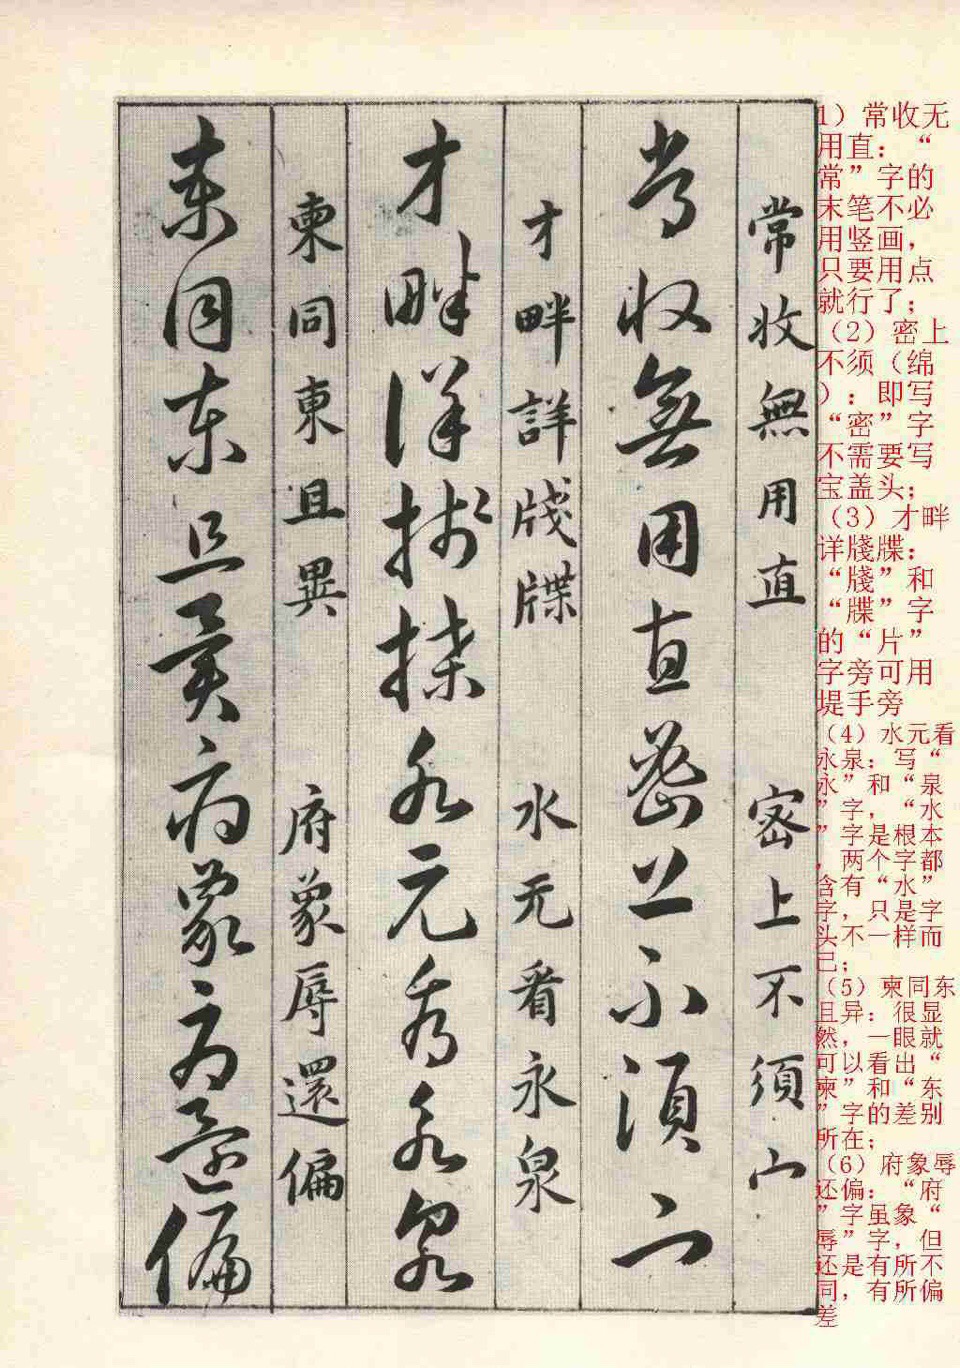 1）常收无
用直：“
常”字的
末笔不必
用竖画，
只要用点
就行了；
（2）密上
不须（绵
）：即写
“密”字
不需要写
宝盖头；
（3）才畔
详牋牒：
“牋”和
“牒”字
的“片”
字旁可用
堤手旁
（4）水元看
永泉：写“
永”和“泉
”字，“水
”字是根本
，两个字都
含有“水”
字，只是字
头不一样而
已；
（5）柬同东
且异：很显
然，一眼就
可以看出“
柬”和“东
”字的差别
所在；
（6）府象辱
还偏：“府
”字虽象“
辱”字，但
还是有所不
同，有所偏
差
常收無用直 密上不須宀
常收無用直密上不須宀
才畔詳牋牒 水元看永泉
才畔詳牋牒水元看永泉
柬同東且異 府象辱還偏
柬同東且異府象辱還偏